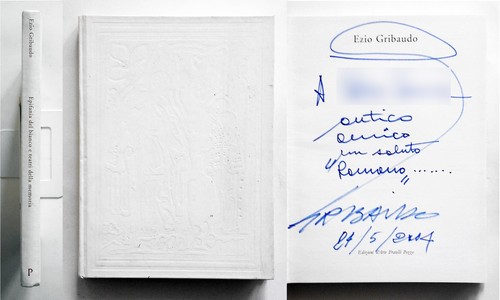 Ezio Gribaudo
Epifania del bianco e teatri della memoria
P
Ezio Gribaudo
A
antico
amico
un saluto
"Romano.......
"
GRIBAUDO
/5/2004
Edizioni d'Arte Fratelli Pozzo